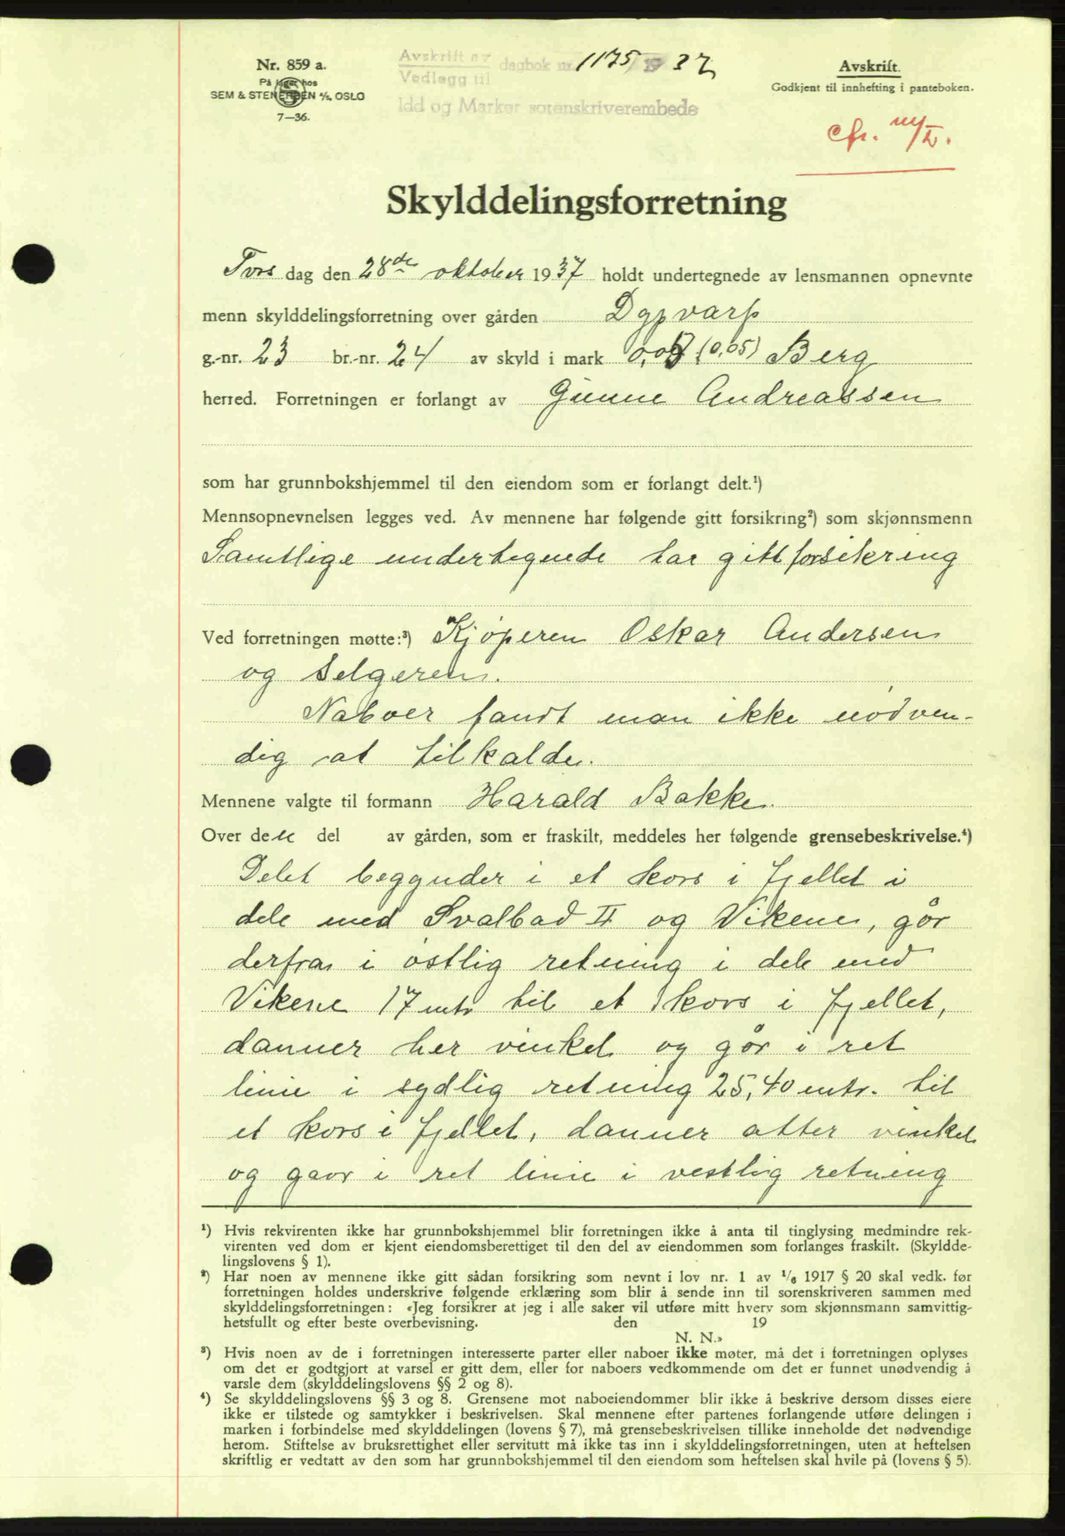 Nr. 859 a.
På lager hos
SEM & STENERSEN A/S, OSLO
7—36.
Avskrift av
Vedlegg til dagbok nr. 1175 19 37
Idd og Marker sorenskriverembede
Avskrift.
Godkjent til innhefting i panteboken.
cfr.
Skylddelingsforretning
Torsdag den 28de oktober 1937 holdt undertegnede av lensmannen opnevnte
menn skylddelingsforretning over gården Dypvarp
g.-nr. 23 br.-nr. 24 av skyld i mark (0,05) Berg
herred. Forretningen er forlangt av Gunne Andreassen
som har grunnbokshjemmel til den eiendom som er forlangt delt.¹)
Mennsopnevnelsen legges ved. Av mennene har følgende gitt forsikring²) som skjønnsmenn
Samtlige undertegnede har gitt forsikring
Ved forretningen møtte:³) Kjøperen Oskar Andersen
og Selgeren.
Naboer fandt man ikke nødven-
dig at tilkalde.
Mennene valgte til formann Harald Bakke.
Over den del av gården, som er fraskilt, meddeles her følgende grensebeskrivelse.⁴)
Delet begynder i et kors i fjellet i
dele med Svalbad II og Vikene, går
derfra i østlig retning i dele med
Vikene 17 mtr til et kors i fjellet,
danner her vinkel og går i ret
linie i sydlig retning 25,40 mtr. til
et kors i fjellet, danner atter vinkel
og gaar i ret linie i vestlig retning
¹) Hvis rekvirenten ikke har grunnbokshjemmel blir forretningen ikke å anta til tinglysing medmindre rek-
virenten ved dom er kjent eiendomsberettiget til den del av eiendommen som forlanges fraskilt. (Skyldde-
lingslovens § 1).
²) Har noen av mennene ikke gitt sådan forsikring som nevnt i lov nr. 1 av 1/6 1917 § 20 skal vedk. før
forretningen holdes underskrive følgende erklæring som blir å sende inn til sorenskriveren sammen med
skylddelingsforretningen: «Jeg forsikrer at jeg i alle saker vil utføre mitt hverv som skjønnsmann samvittig-
hetsfullt og efter beste overbevisning. den 19
N. N.»
³) Hvis noen av de i forretningen interesserte parter eller naboer ikke møter, må det i forretningen oplyses
om det er godtgjort at varsel er gitt dem, eller for naboers vedkommende om det er funnet unødvendig å
varsle dem (skylddelingslovens §§ 2 og 8).
⁴) Se skylddelingslovens §§ 3 og 8. Grensene mot naboeiendommer blir ikke å beskrive dersom disses eiere
ikke er tilstede og samtykker i beskrivelsen. Skal mennene efter partenes forlangende utføre delingen i
marken i forbindelse med skylddelingen (lovens § 7), må grensebeskrivelsen tillike inneholde det nødvendige
herom. Stiftelse av bruksrettighet eller servitutt må ikke tas inn i skylddelingsforretningen, uten at heftelsen
skriftlig er vedtatt av den som har grunnbokshjemmel til den eiendom som heftelsen skal hvile på (lovens § 5).